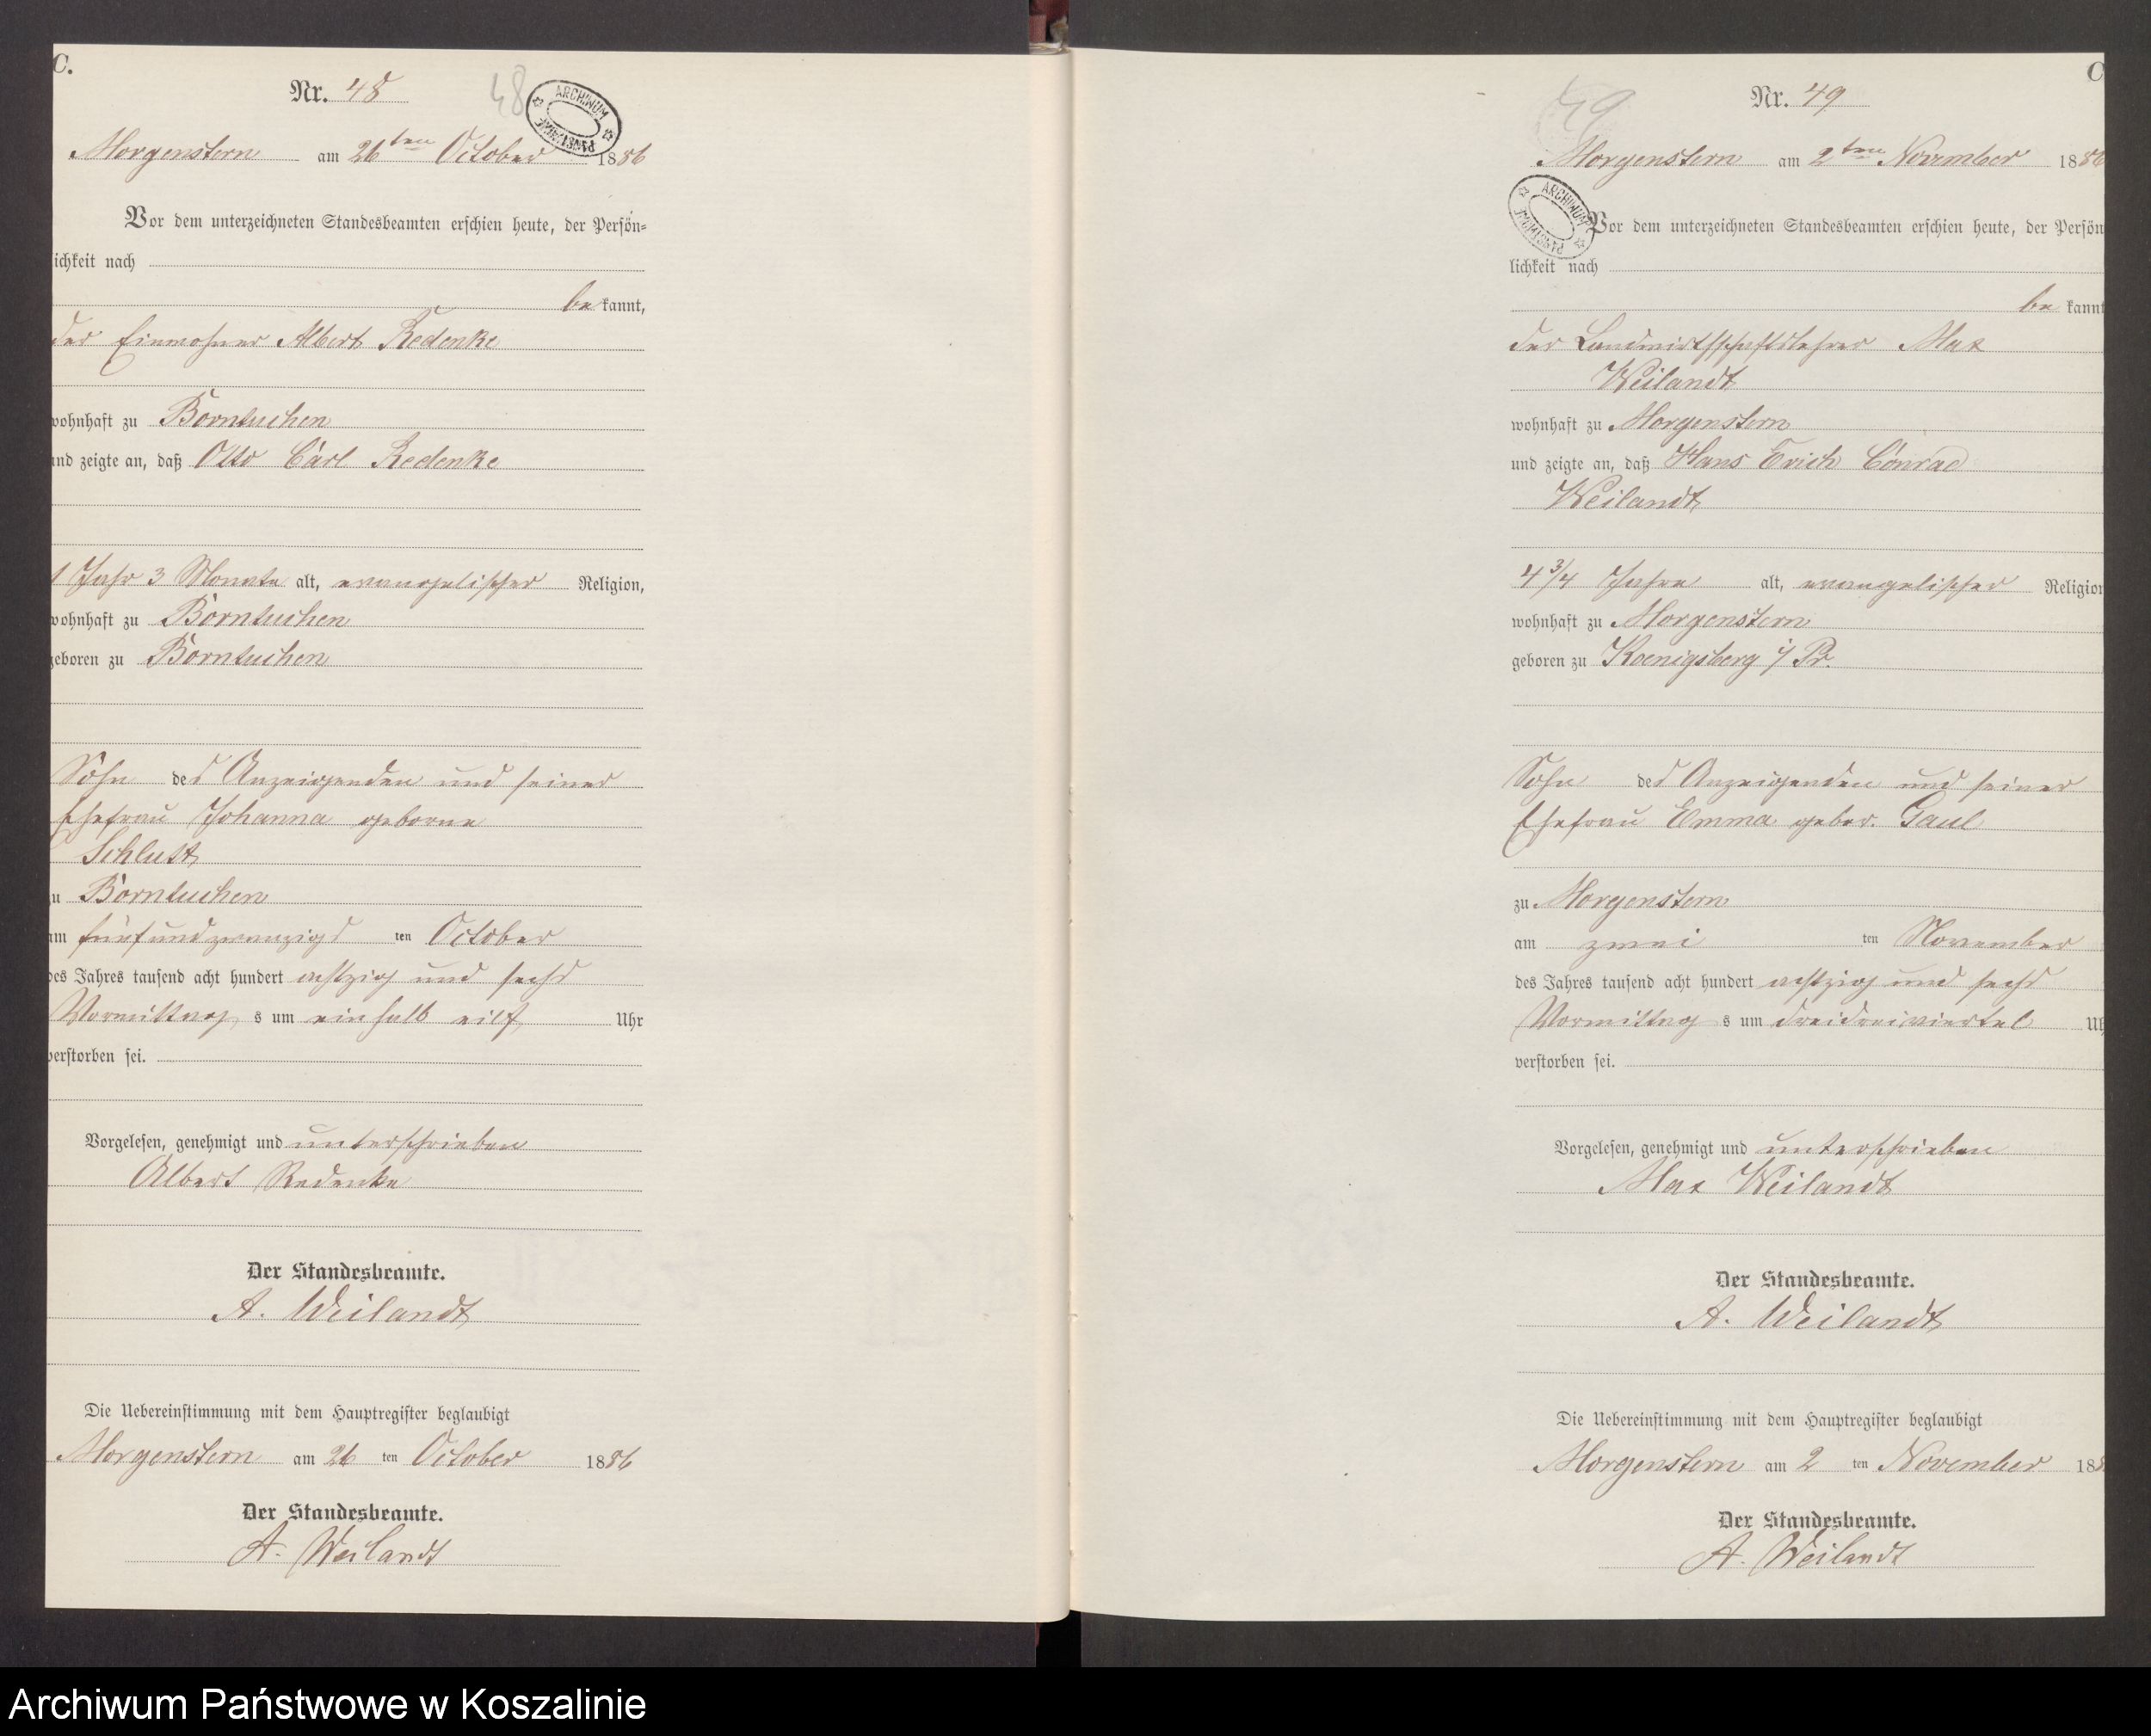 C.
Nr. 48
48
ARCHIWUM PAŃSTWOWE
Morgenstern am 26ten October 1886
Vor dem unterzeichneten Standesbeamten erschien heute, der Persön=
lichkeit nach
be kannt,
der Einwohner Albert Redenke
wohnhaft zu Borntuchen
und zeigte an, daß Otto Carl Redenke
1 Jahr 3 Monate alt, evangelischer Religion,
wohnhaft zu Borntuchen
geboren zu Borntuchen
Sohn des Anzeigenden und seiner
Ehefrau Johanna geborne
Schlutt
zu Borntuchen
am fünfundzwanzigs ten October
des Jahres tausend acht hundert achtzig und sechs
Vormittag s um ein halb eilf Uhr
verstorben sei.
Vorgelesen, genehmigt und unterschrieben
Albert Redenke
Der Standesbeamte.
A. Weilandt
Die Uebereinstimmung mit dem Hauptregister beglaubigt
Morgenstern am 26 ten October 1886
Der Standesbeamte.
A. Weilandt
C
Nr. 49
49
Morgenstern am 2ten November 1886
ARCHIWUM PAŃSTWOWE
Vor dem unterzeichneten Standesbeamten erschien heute, der Persön
lichkeit nach
be kannt
der Landwirthschaftslehrer Max
Weilandt
wohnhaft zu Morgenstern
und zeigte an, daß Hans Erich Conrad
Weilandt
4 3/4 Jahre alt, evangelischer Religion
wohnhaft zu Morgenstern
geboren zu Koenigsberg i/ Pr.
Sohn des Anzeigenden und seiner
Ehefrau Emma gebor. Gaul
zu Morgenstern
am zwei ten November
des Jahres tausend acht hundert achtzig und sechs
Vormittag s um dreidreiviertel Uh
verstorben sei.
Vorgelesen, genehmigt und unterschrieben
Max Weilandt
Der Standesbeamte.
A. Weilandt
Die Uebereinstimmung mit dem Hauptregister beglaubigt
Morgenstern am 2 ten November 188
Der Standesbeamte.
A. Weilandt
Archiwum Państwowe w Koszalinie